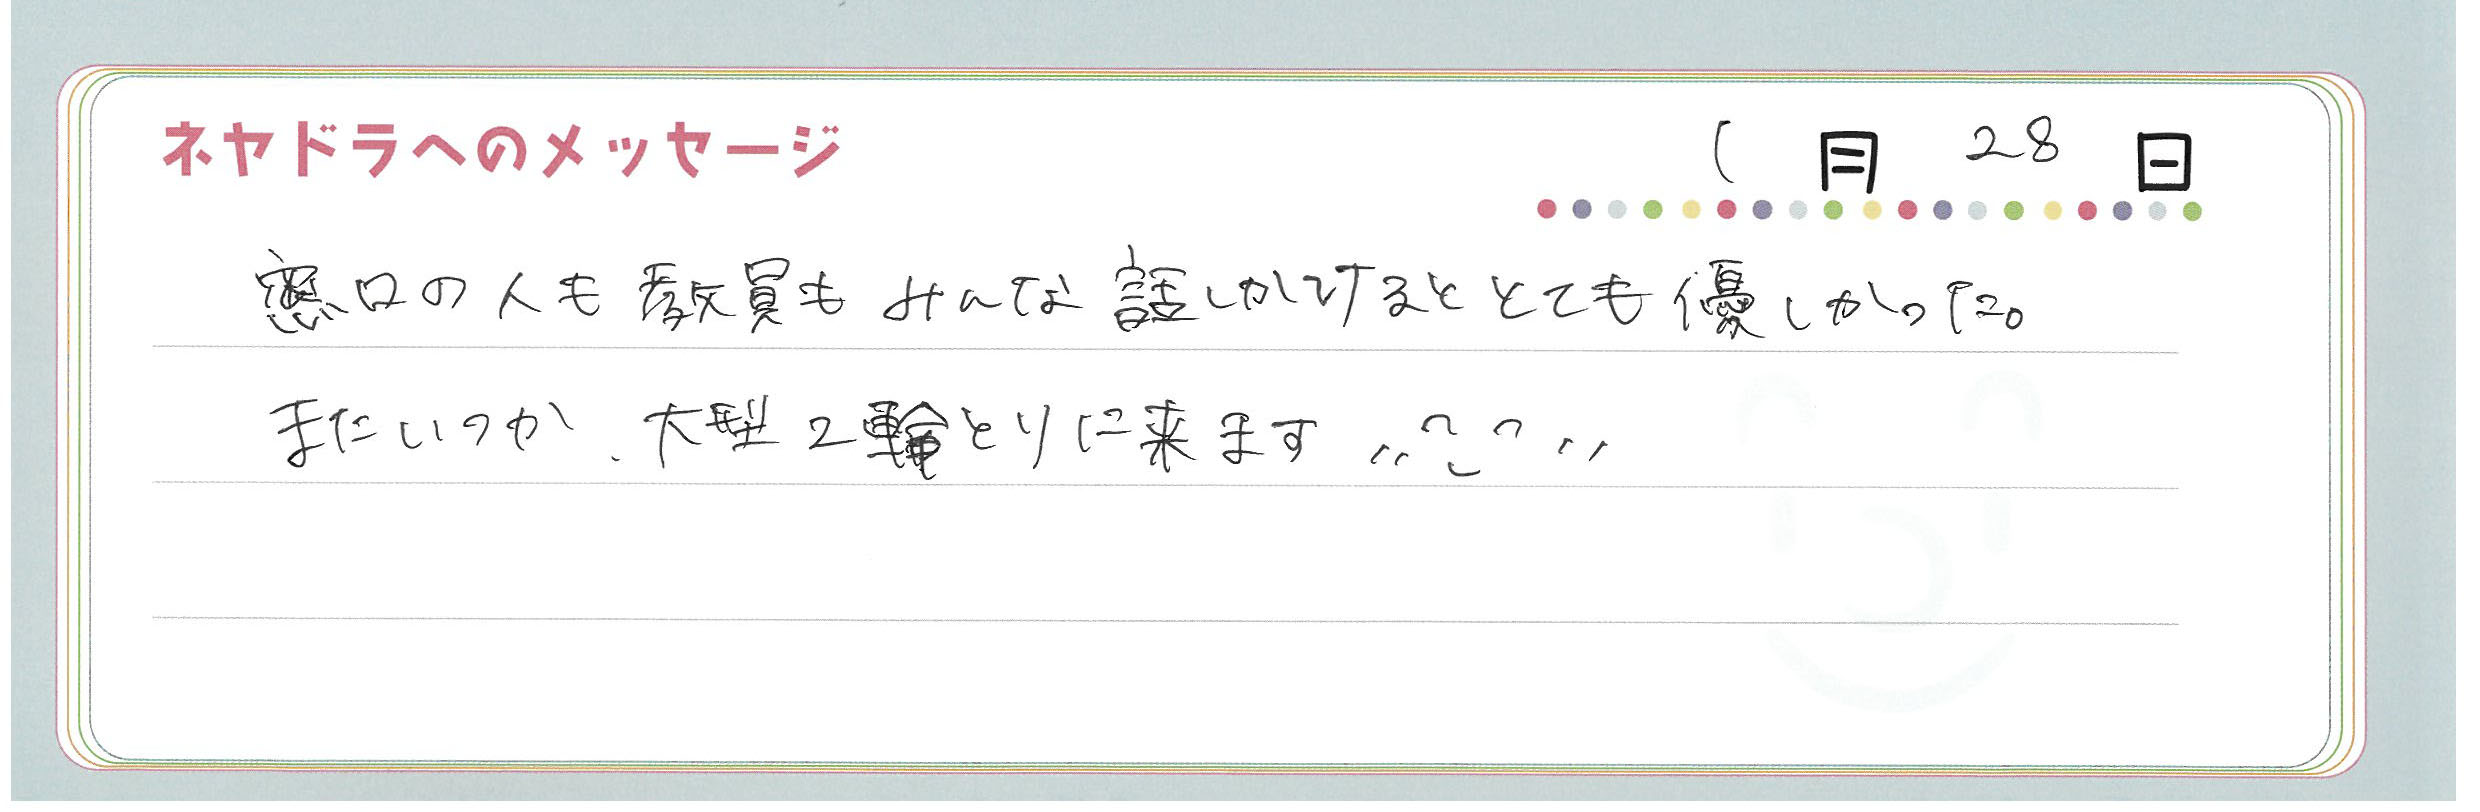 ネヤドラへのメッセージ
1月28日
窓口の人も教員もみんな話しかけるととても優しかった。
またいつか、大型2輪とりに来ます